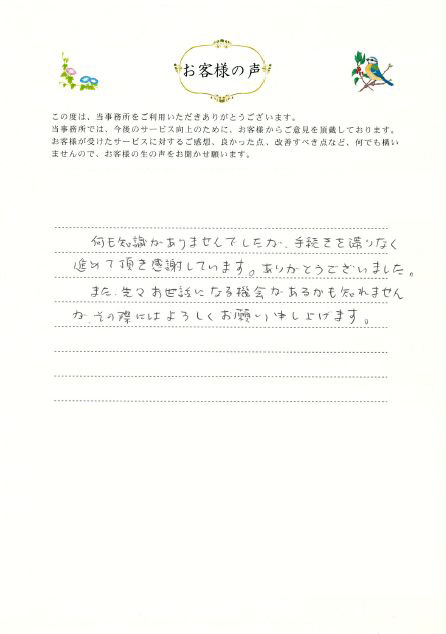 お客様の声
この度は、当事務所をご利用いただきありがとうございます。
当事務所では、今後のサービス向上のために、お客様からご意見を頂戴しております。
お客様が受けたサービスに対するご感想、良かった点、改善すべき点など、何でも構い
ませんので、お客様の生の声をお聞かせ願います。
何も知識がありませんでしたが、手続きを滞りなく
進めて頂き感謝しています。ありがとうございました。
また、先々お世話になる機会があるかも知れません
が、その際にはよろしくお願い申し上げます。